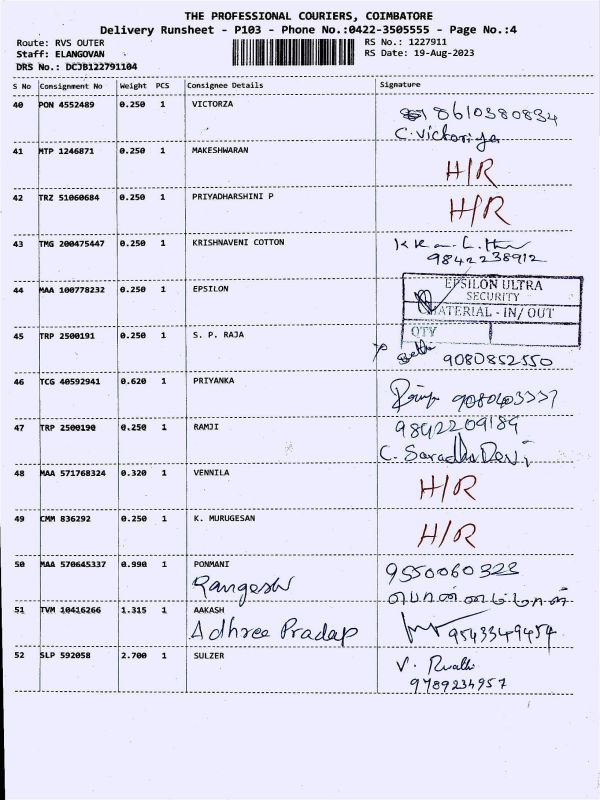 THE PROFESSIONAL COURIERS, COIMBATORE
Delivery Runsheet - P103 - Phone No.:0422-3505555 - Page No.:4
Route: RVS OUTER RS No.: 1227911
Staff: ELANGOVAN RS Date: 19-Aug-2023
DRS No.: DCJB122791104
S No Consignment No Weight PCS Consignee Details Signature
40 PON 4552489 0.250 1 VICTORZA 8610380834
C. Victoriya
41 MTP 1246871 0.250 1 MAKESHWARAN
H/R
42 TRZ 51060684 0.250 1 PRIYADHARSHINI P
H/R
43 TMG 200475447 0.250 1 KRISHNAVENI COTTON
9842238912
44 MAA 100778232 0.250 1 EPSILON EPSILON ULTRA
SECURITY
MATERIAL - IN/ OUT
QTY
45 TRP 2500191 0.250 1 S. P. RAJA
9080852550
46 TCG 40592941 0.620 1 PRIYANKA
9080403337
47 TRP 2500190 0.250 1 RAMJI 9842209189
C. Saradha Devi
48 MAA 571768324 0.320 1 VENNILA
H/R
49 CMM 836292 0.250 1 K. MURUGESAN
H/R
50 MAA 570645337 0.990 1 PONMANI 9550060323
Rangesh
51 TVM 10416266 1.315 1 AAKASH
Adhree Pradap 9543349454
52 SLP 592058 2.700 1 SULZER V.
9789234957